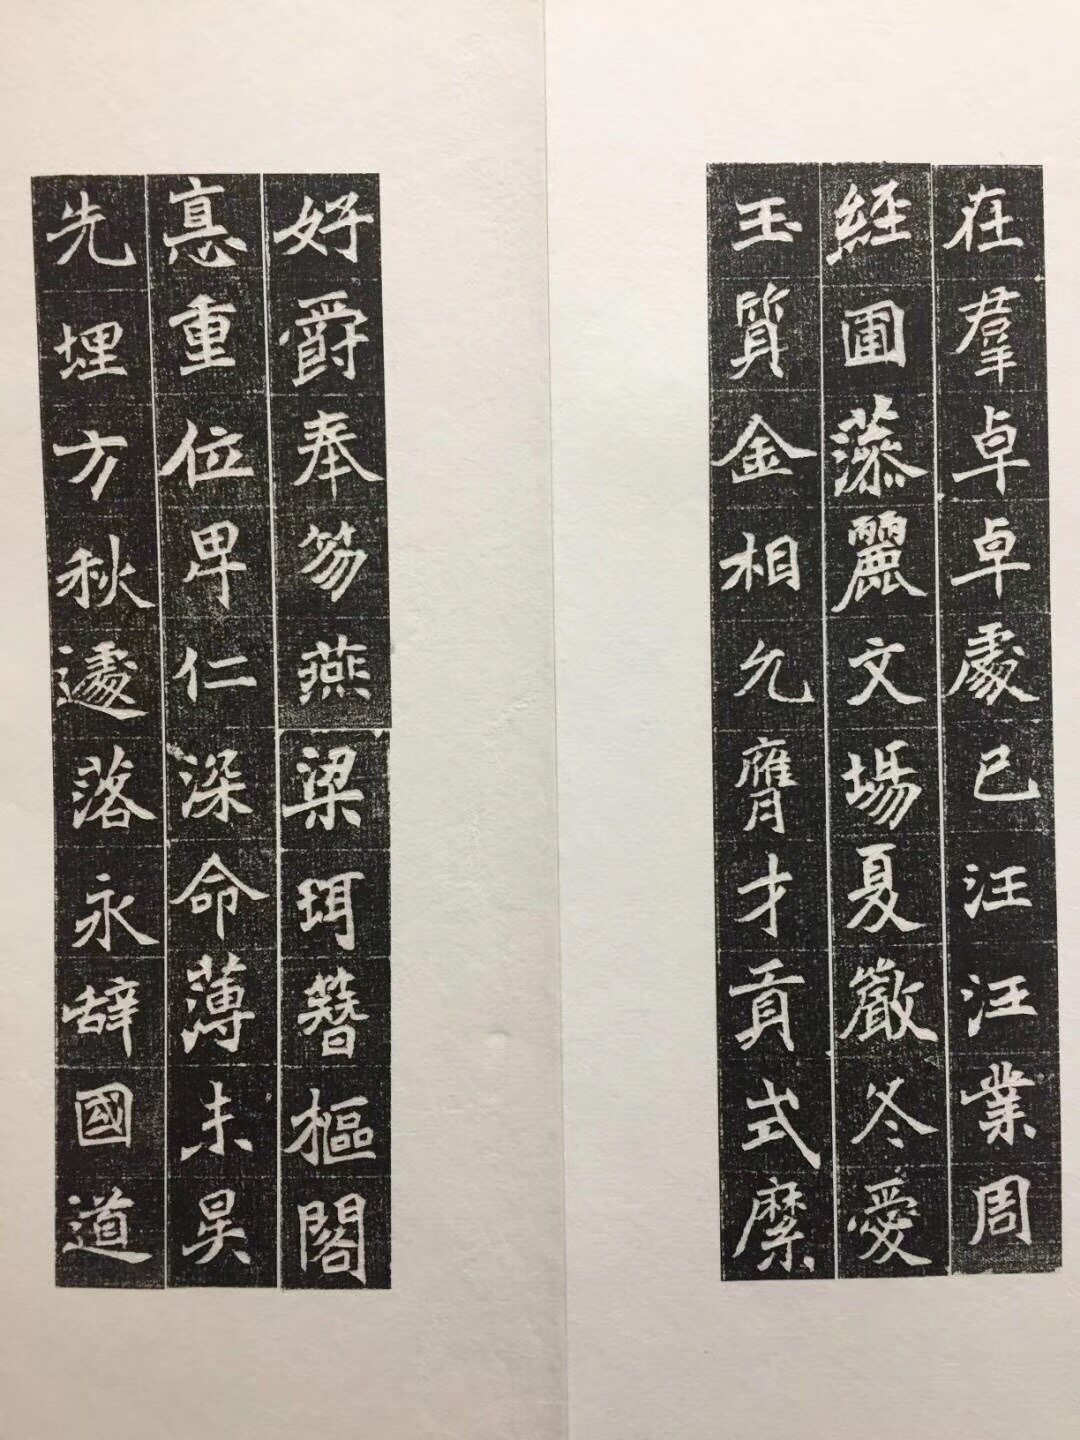 在羣卓卓處已汪汪業周
經圃藻麗文場夏嚴冬愛
玉質金相允膺才貢式縻
好爵奉笏燕梁珥簪樞閣
悳重位卑仁深命薄未昃
先埋方秋遽落永辭國道